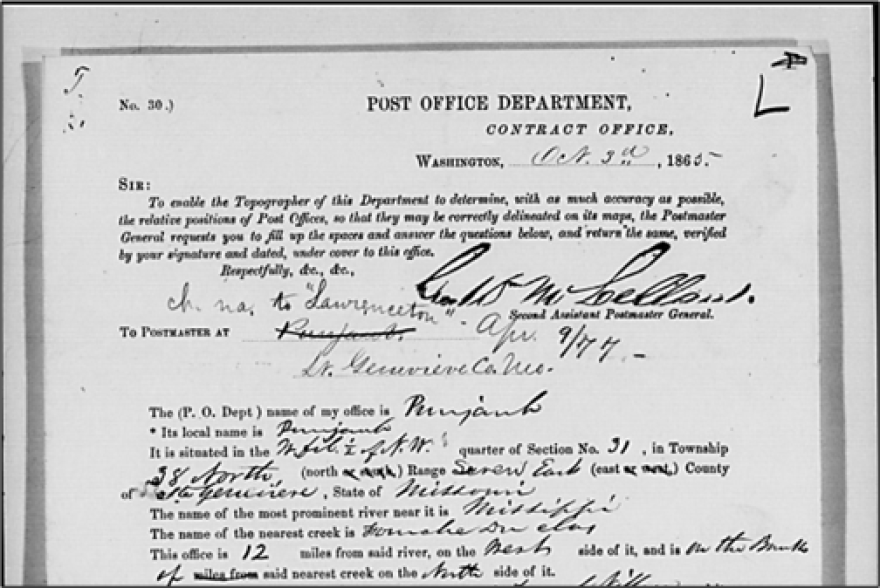 No. 30.)
POST OFFICE DEPARTMENT,
CONTRACT OFFICE,
WASHINGTON, Oct. 3d, 1865.
SIR:
To enable the Topographer of this Department to determine, with as much accuracy as possible,
the relative positions of Post Offices, so that they may be correctly delineated on its maps, the Postmaster
General requests you to fill up the spaces and answer the questions below, and return the same, verified
by your signature and dated, under cover to this office.
Respectfully, &c., &c.,
Geo. W. McLellan.
ch. na. to "Lawrenceton" - Apr. 9/77 -
Second Assistant Postmaster General.
TO POSTMASTER AT Punjaub.
St. Genevieve Co. Mo.
The (P. O. Dept) name of my office is Punjaub
* Its local name is Punjaub
It is situated in the W. of N.W. quarter of Section No. 31, in Township
38 North, (north or south,) Range Seven East (east or west,) County
of Ste Genevieve, State of Missouri
The name of the most prominent river near it is Missippi
The name of the nearest creek is
This office is 12 miles from said river, on the West side of it, and is on the Bank
of miles from said nearest creek on the North side of it.